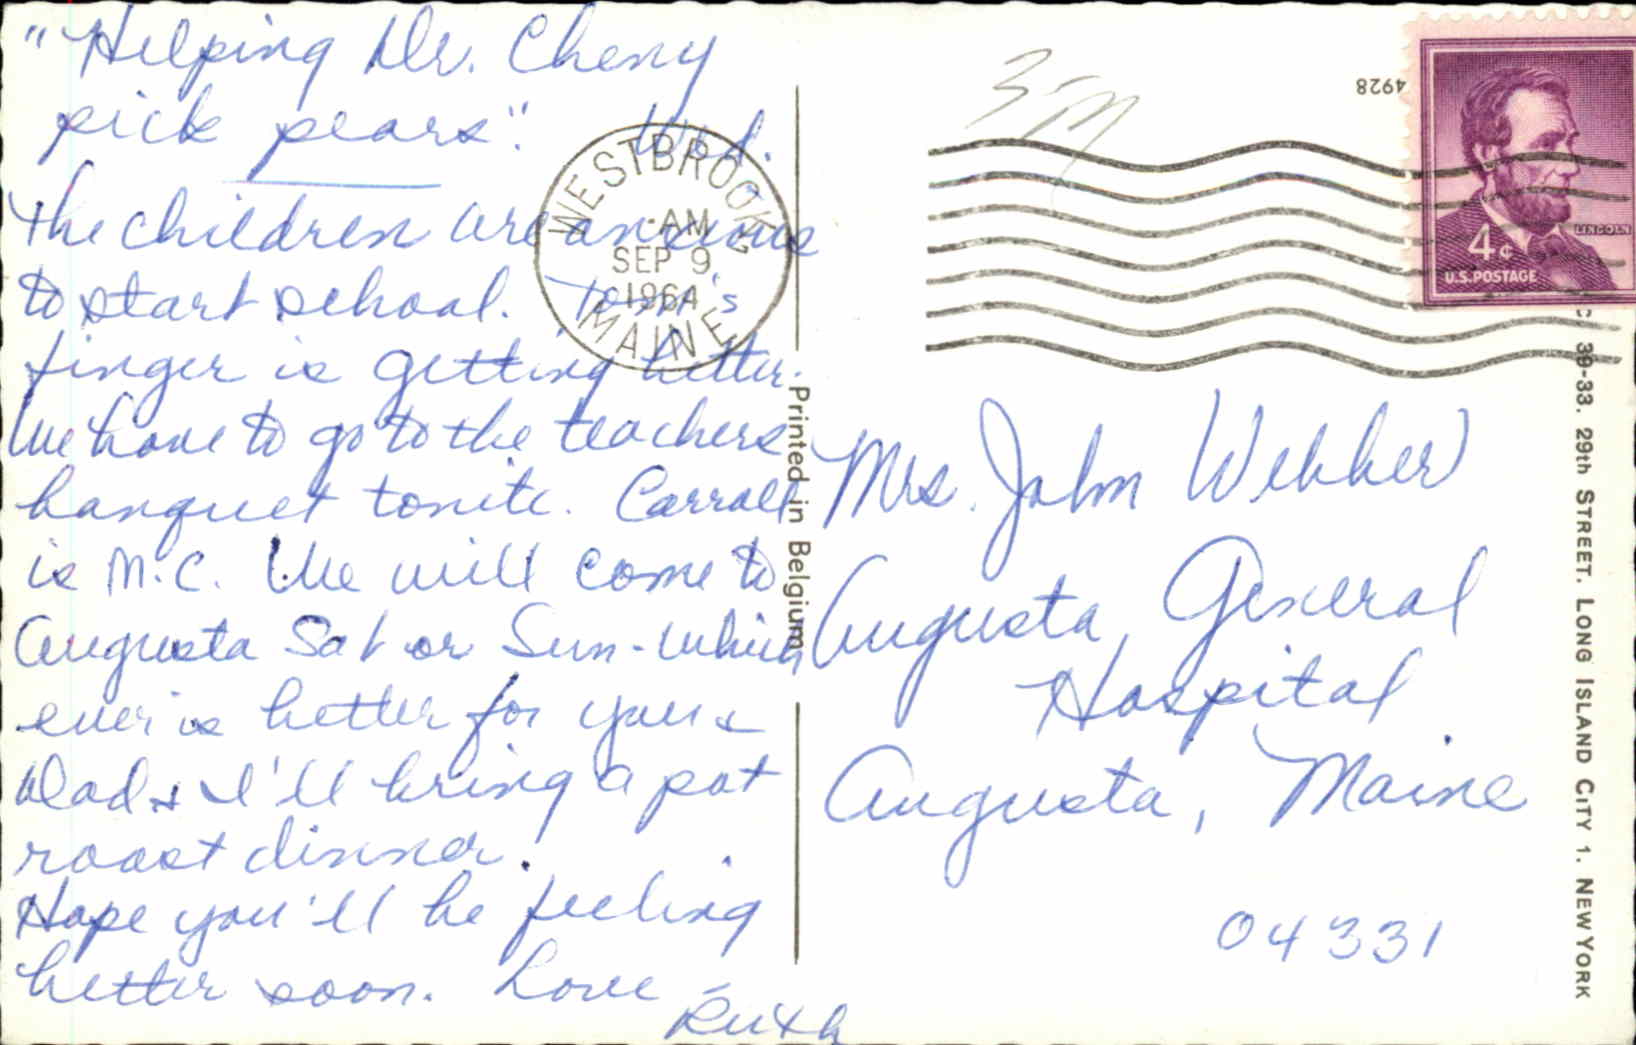 "Helping Dr. Cheny
pick pears".
Wed.
The children are anxious
to start school. Tommi's
finger is getting better.
We have to go to the teachers
banquet tonite. Carroll
is M.C. We will come to
Augusta Sat or Sun - which
ever is better for you &
Dad & I'll bring a pot
roast dinner.
Hope you'll be feeling
better soon. Love
Ruth
WESTBROOK
AM
SEP 9
1964
MAINE
Printed in Belgium
4928
LINCOLN
4¢
U.S. POSTAGE
Mrs. John Webber
Augusta General
Hospital
Augusta, Maine
04331
39-33. 29th STREET. LONG ISLAND CITY 1. NEW YORK